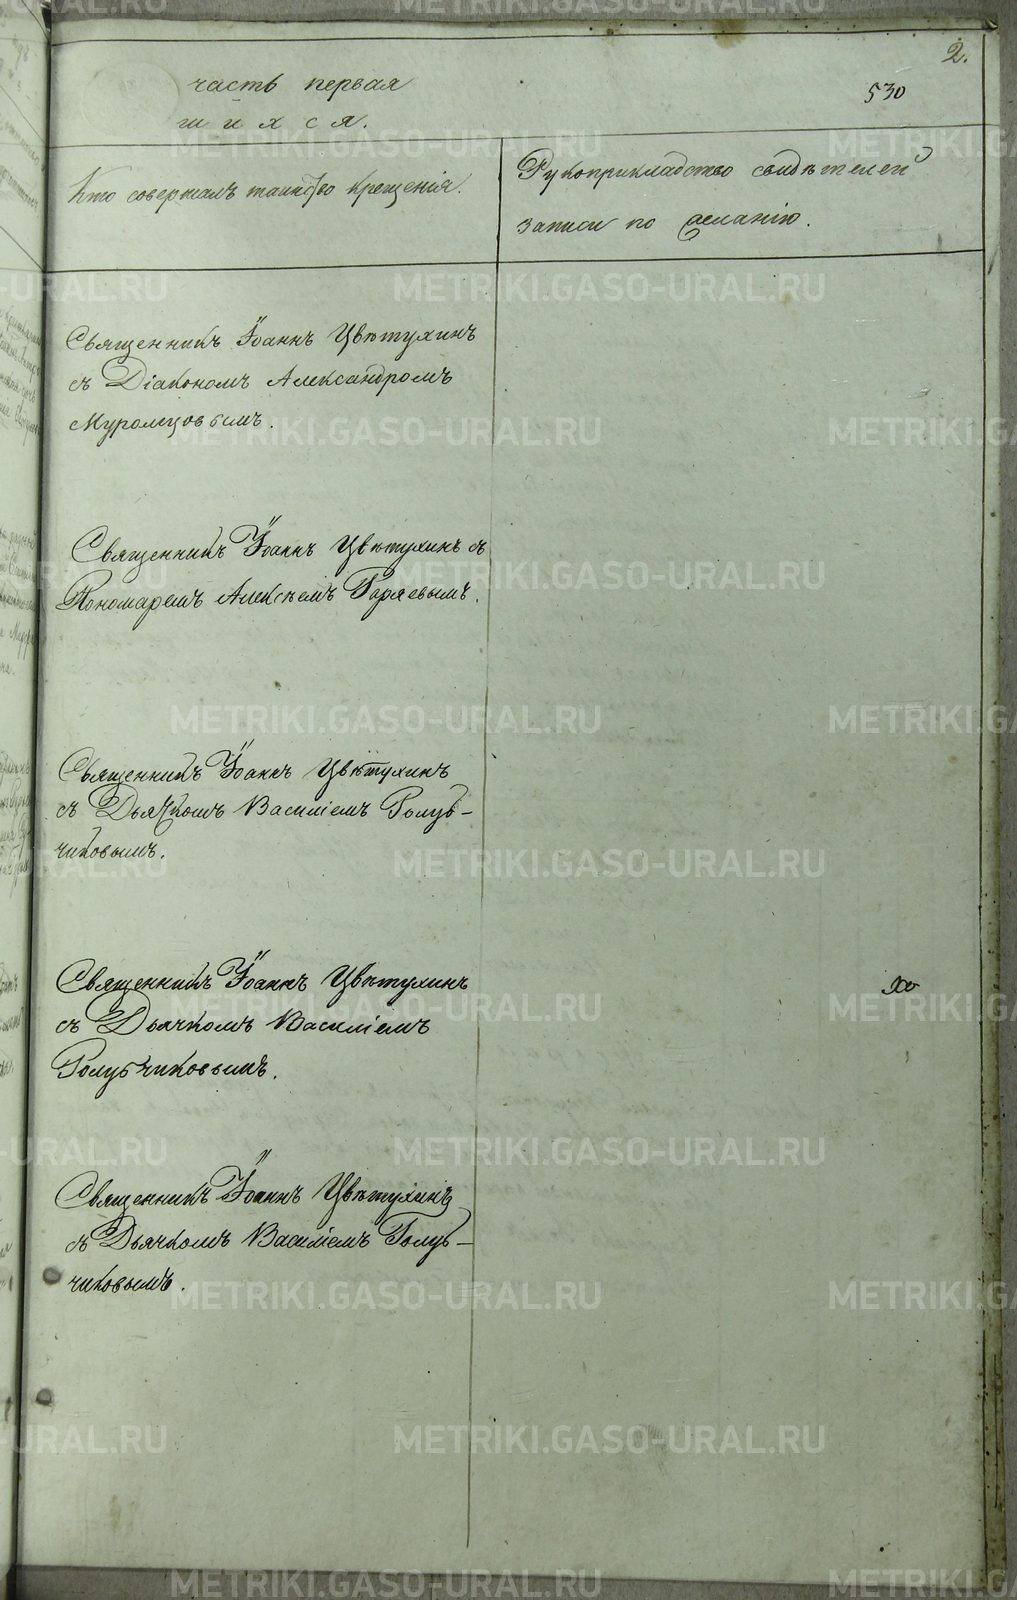 2.
530
часть первая
шихся.
Кто совершалъ таинство крещенія.
Рукоприкладство свидѣтелей
записи по желанію.
Священникъ Іоаннъ Цвѣтухинъ
съ Діакономъ Александромъ
Муромцовымъ.
Священникъ Іоаннъ Цвѣтухинъ съ
Пономаремъ Алексѣемъ Горяевымъ.
Священникъ Іоаннъ Цвѣтухинъ
съ Дьячкомъ Василіемъ Голуб-
чиковымъ.
Священникъ Іоаннъ Цвѣтухинъ
съ Дьячкомъ Василіемъ
Голубчиковымъ.
Священникъ Іоаннъ Цвѣтухинъ
съ Дьячкомъ Василіемъ Голуб-
чиковымъ.
METRIKI.GASO-URAL.RU